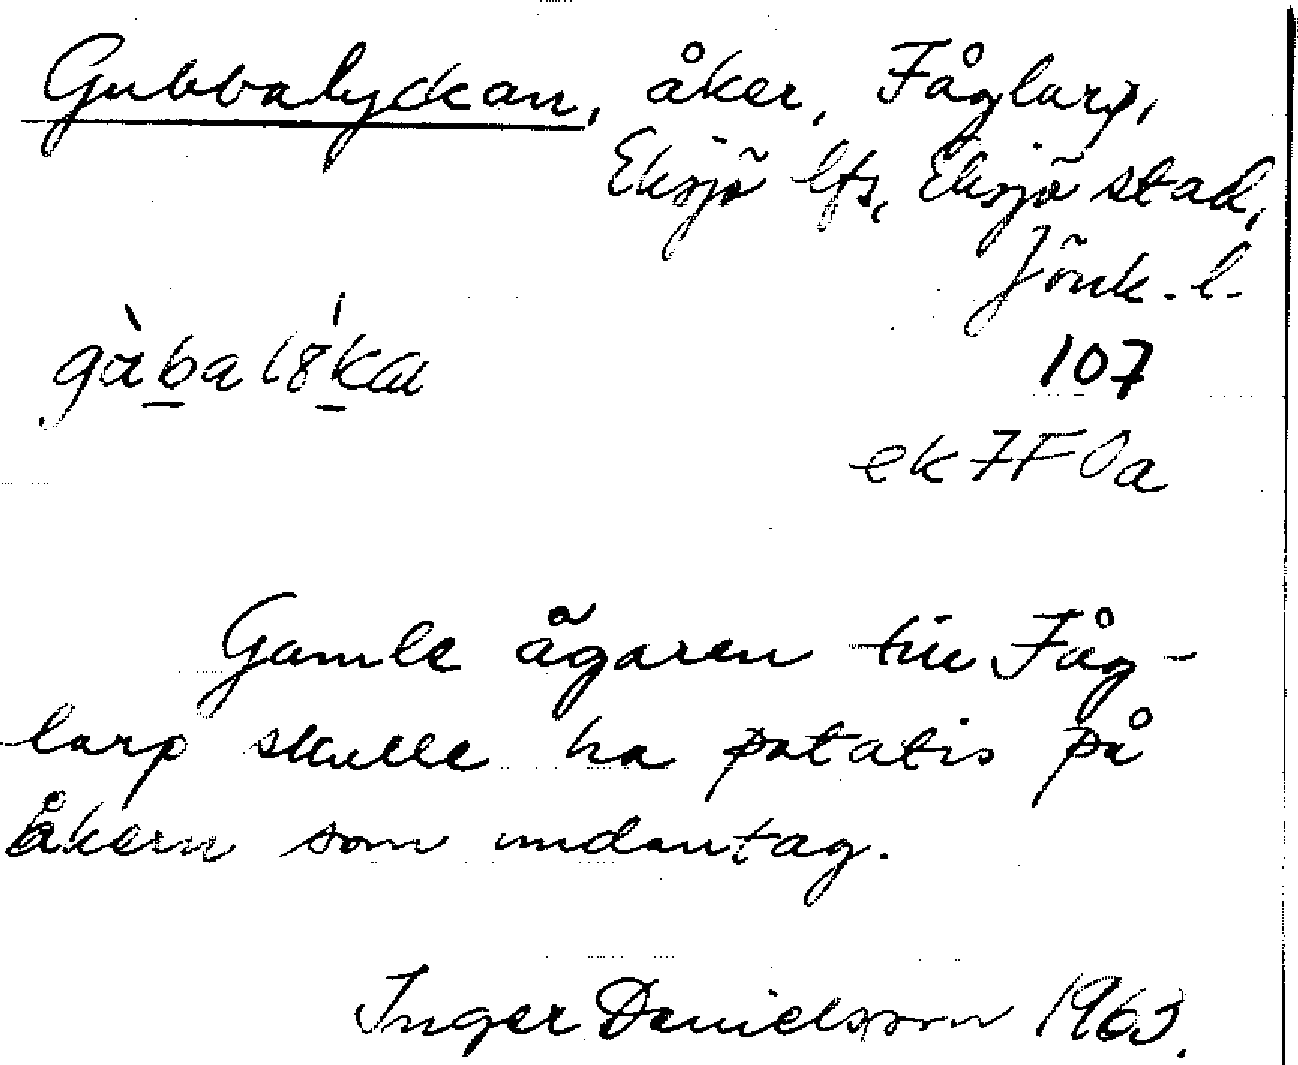 Gubbalyckan, åker, Fåglarp,
Eksjö lfs, Eksjö stad,
Jönk. l.
107
ek 7F 0a
Gamle ägaren till Fåg-
larp skulle ha potatis på
åkern som undantag.
Inger Danielsson 1963.